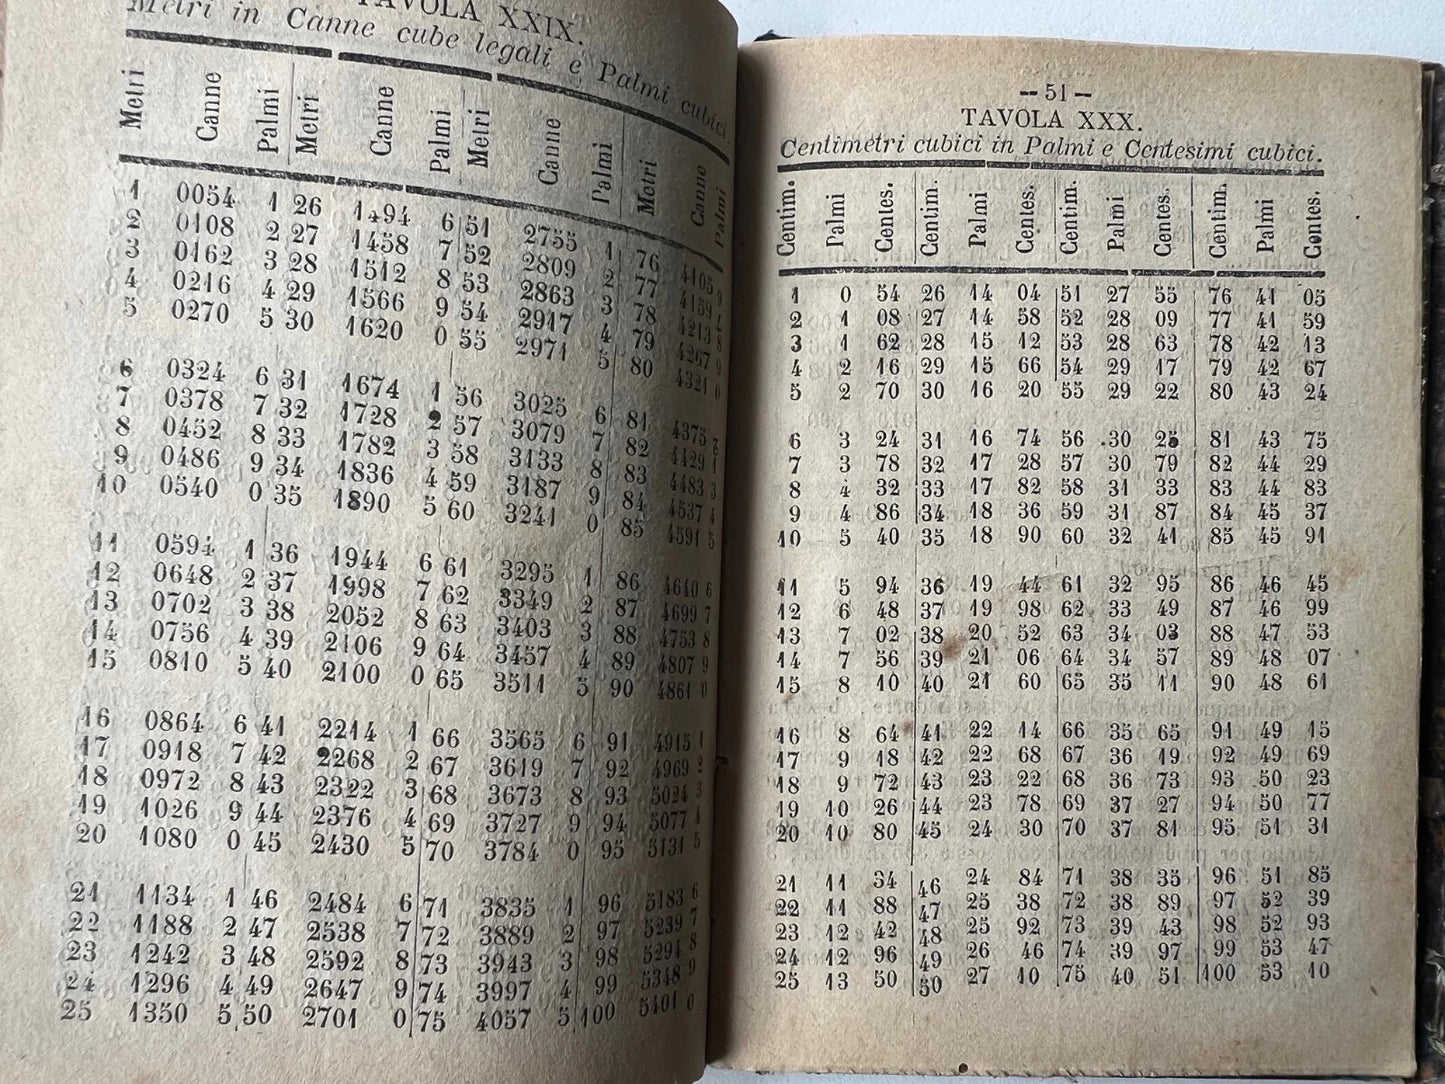 TAVOLA XXIX.
Metri in Canne cube legali e Palmi cubici
Metri Canne Palmi Metri Canne Palmi Metri Canne Palmi Metri Canne Palmi
1 0054 1 26 1494 6 51 2755 1 76 4105 6
2 0108 2 27 1458 7 52 2809 2 77 4159 7
3 0162 3 28 1512 8 53 2863 3 78 4213 8
4 0216 4 29 1566 9 54 2917 4 79 4267 9
5 0270 5 30 1620 0 55 2971 5 80 4321 0
6 0324 6 31 1674 1 56 3025 6 81 4375 2
7 0378 7 32 1728 2 57 3079 7 82 4429 1
8 0452 8 33 1782 3 58 3133 8 83 4483 3
9 0486 9 34 1836 4 59 3187 9 84 4537 4
10 0540 0 35 1890 5 60 3241 0 85 4591 5
11 0594 1 36 1944 6 61 3295 1 86 4640 6
12 0648 2 37 1998 7 62 3349 2 87 4699 7
13 0702 3 38 2052 8 63 3403 3 88 4753 8
14 0756 4 39 2106 9 64 3457 4 89 4807 9
15 0810 5 40 2100 0 65 3511 5 90 4861 0
16 0864 6 41 2214 1 66 3565 6 91 4915 1
17 0918 7 42 2268 2 67 3619 7 92 4969 2
18 0972 8 43 2322 3 68 3673 8 93 5024 3
19 1026 9 44 2376 4 69 3727 9 94 5077 4
20 1080 0 45 2430 5 70 3784 0 95 5131 5
21 1134 1 46 2484 6 71 3835 1 96 5183 6
22 1188 2 47 2538 7 72 3889 2 97 5239 7
23 1242 3 48 2592 8 73 3943 3 98 5294 8
24 1296 4 49 2647 9 74 3997 4 99 5348 9
25 1350 5 50 2701 0 75 4057 5 100 5401 0
— 51 —
TAVOLA XXX.
Centimetri cubici in Palmi e Centesimi cubici.
Centim. Palmi Centes. Centim. Palmi Centes. Centim. Palmi Centes. Centim. Palmi Centes.
1 0 54 26 14 04 51 27 55 76 41 05
2 1 08 27 14 58 52 28 09 77 41 59
3 1 62 28 15 12 53 28 63 78 42 13
4 2 16 29 15 66 54 29 17 79 42 67
5 2 70 30 16 20 55 29 22 80 43 24
6 3 24 31 16 74 56 30 25 81 43 75
7 3 78 32 17 28 57 30 79 82 44 29
8 4 32 33 17 82 58 31 33 83 44 83
9 4 86 34 18 36 59 31 87 84 45 37
10 5 40 35 18 90 60 32 41 85 45 91
11 5 94 36 19 44 61 32 95 86 46 45
12 6 48 37 19 98 62 33 49 87 46 99
13 7 02 38 20 52 63 34 03 88 47 53
14 7 56 39 21 06 64 34 57 89 48 07
15 8 10 40 21 60 65 35 11 90 48 61
16 8 64 41 22 14 66 35 65 91 49 15
17 9 18 42 22 68 67 36 19 92 49 69
18 9 72 43 23 22 68 36 73 93 50 23
19 10 26 44 23 78 69 37 27 94 50 77
20 10 80 45 24 30 70 37 81 95 51 31
21 11 34 46 24 84 71 38 35 96 51 85
22 11 88 47 25 38 72 38 89 97 52 39
23 12 42 48 25 92 73 39 43 98 52 93
24 12 96 49 26 46 74 39 97 99 53 47
25 13 50 50 27 10 75 40 51 100 53 10